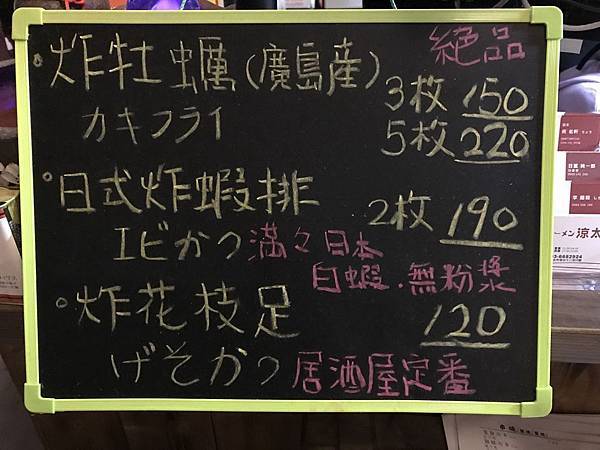 。炸牡蠣(廣島産) 絕品
カキフライ 3枚 150
5枚 220
。日式炸蝦排 2枚 190
エビかつ 満々日本
白蝦．無粉漿
。炸花枝足 120
げそかつ 居酒屋定番
ーメン 涼太